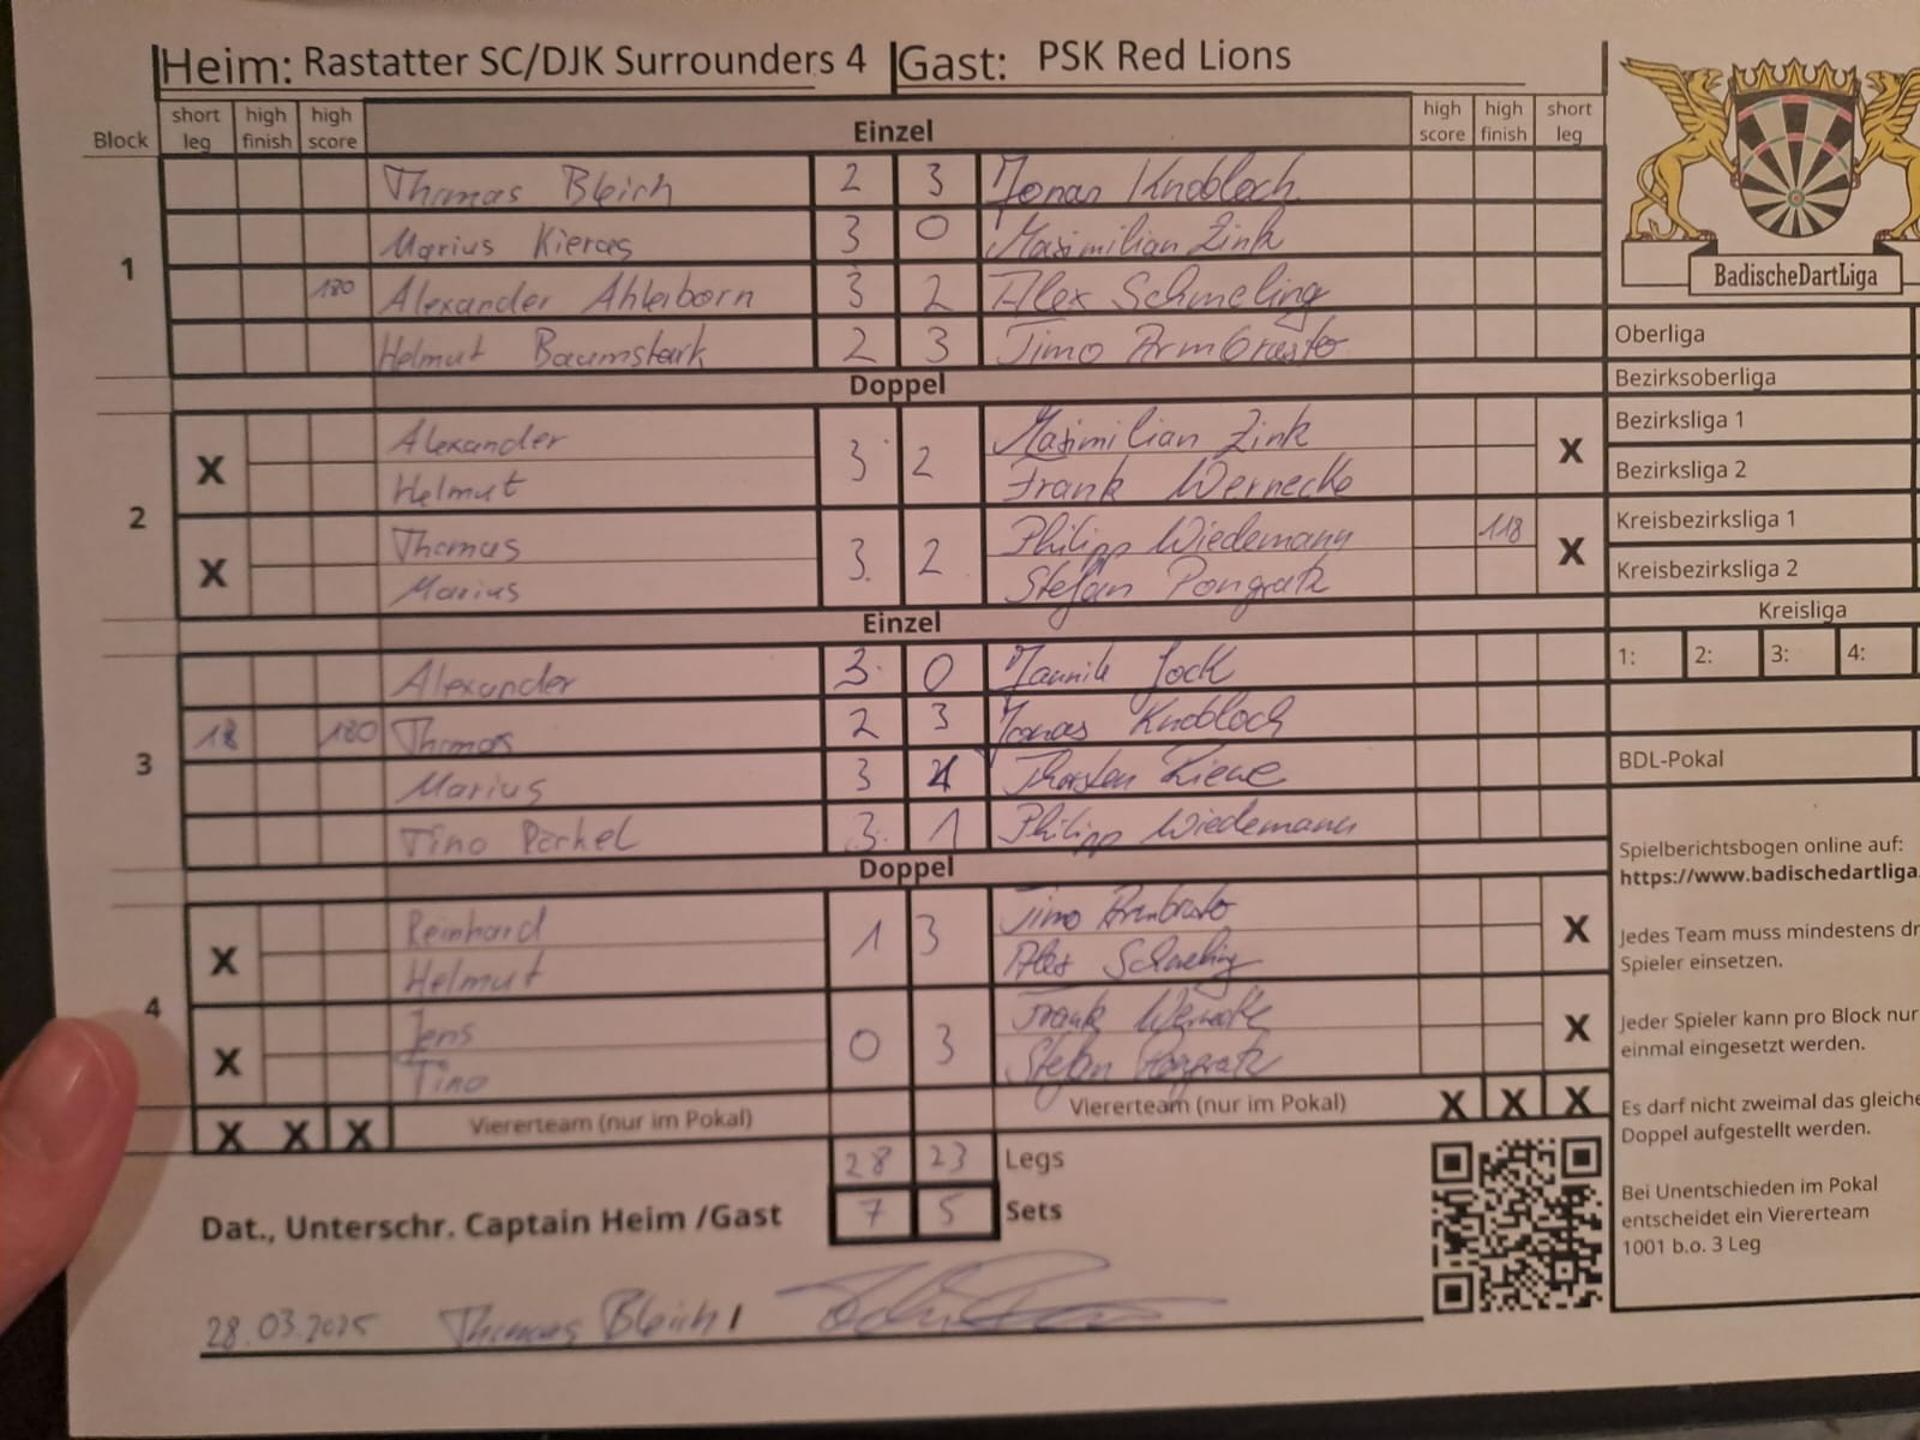 Heim: Rastatter SC/DJK Surrounders 4 Gast: PSK Red Lions
Block short leg high finish high score Einzel high score high finish short leg
1
Thomas Bleich 2 3 Jonas Knobloch
Marius Kieras 3 0 Maximilian Zink
180 Alexander Ahlerborn 3 2 Alex Schmeling
Helmut Baumstark 2 3 Timo Armbrusto
Doppel
2
X Alexander 3 2 Maximilian Zink X
Helmut Frank Wernecke
X Thomas 3 2 Philipp Wiedemann 118 X
Marius Stefan Pongratz
Einzel
3
Alexander 3 0 Jannik Jock
18 180 Thomas 2 3 Jonas Knobloch
Marius 3 1 Thorsten Kiewe
Tino Perkel 3 1 Philipp Wiedemann
Doppel
4
X Reinhard 1 3 Timo Armbrusto X
Helmut Alex Schmeling
X Jens 0 3 Frank Wernecke X
Tino Stefan Pongratz
X X X Viererteam (nur im Pokal) Viererteam (nur im Pokal) X X X
28 23 Legs
7 5 Sets
Dat., Unterschr. Captain Heim /Gast
28.03.2025 Thomas Bleich /
BadischeDartLiga
Oberliga
Bezirksoberliga
Bezirksliga 1
Bezirksliga 2
Kreisbezirksliga 1
Kreisbezirksliga 2
Kreisliga
1: 2: 3: 4:
BDL-Pokal
Spielberichtsbogen online auf:
https://www.badischedartliga.
Jedes Team muss mindestens dr
Spieler einsetzen.
Jeder Spieler kann pro Block nur
einmal eingesetzt werden.
Es darf nicht zweimal das gleiche
Doppel aufgestellt werden.
Bei Unentschieden im Pokal
entscheidet ein Viererteam
1001 b.o. 3 Leg